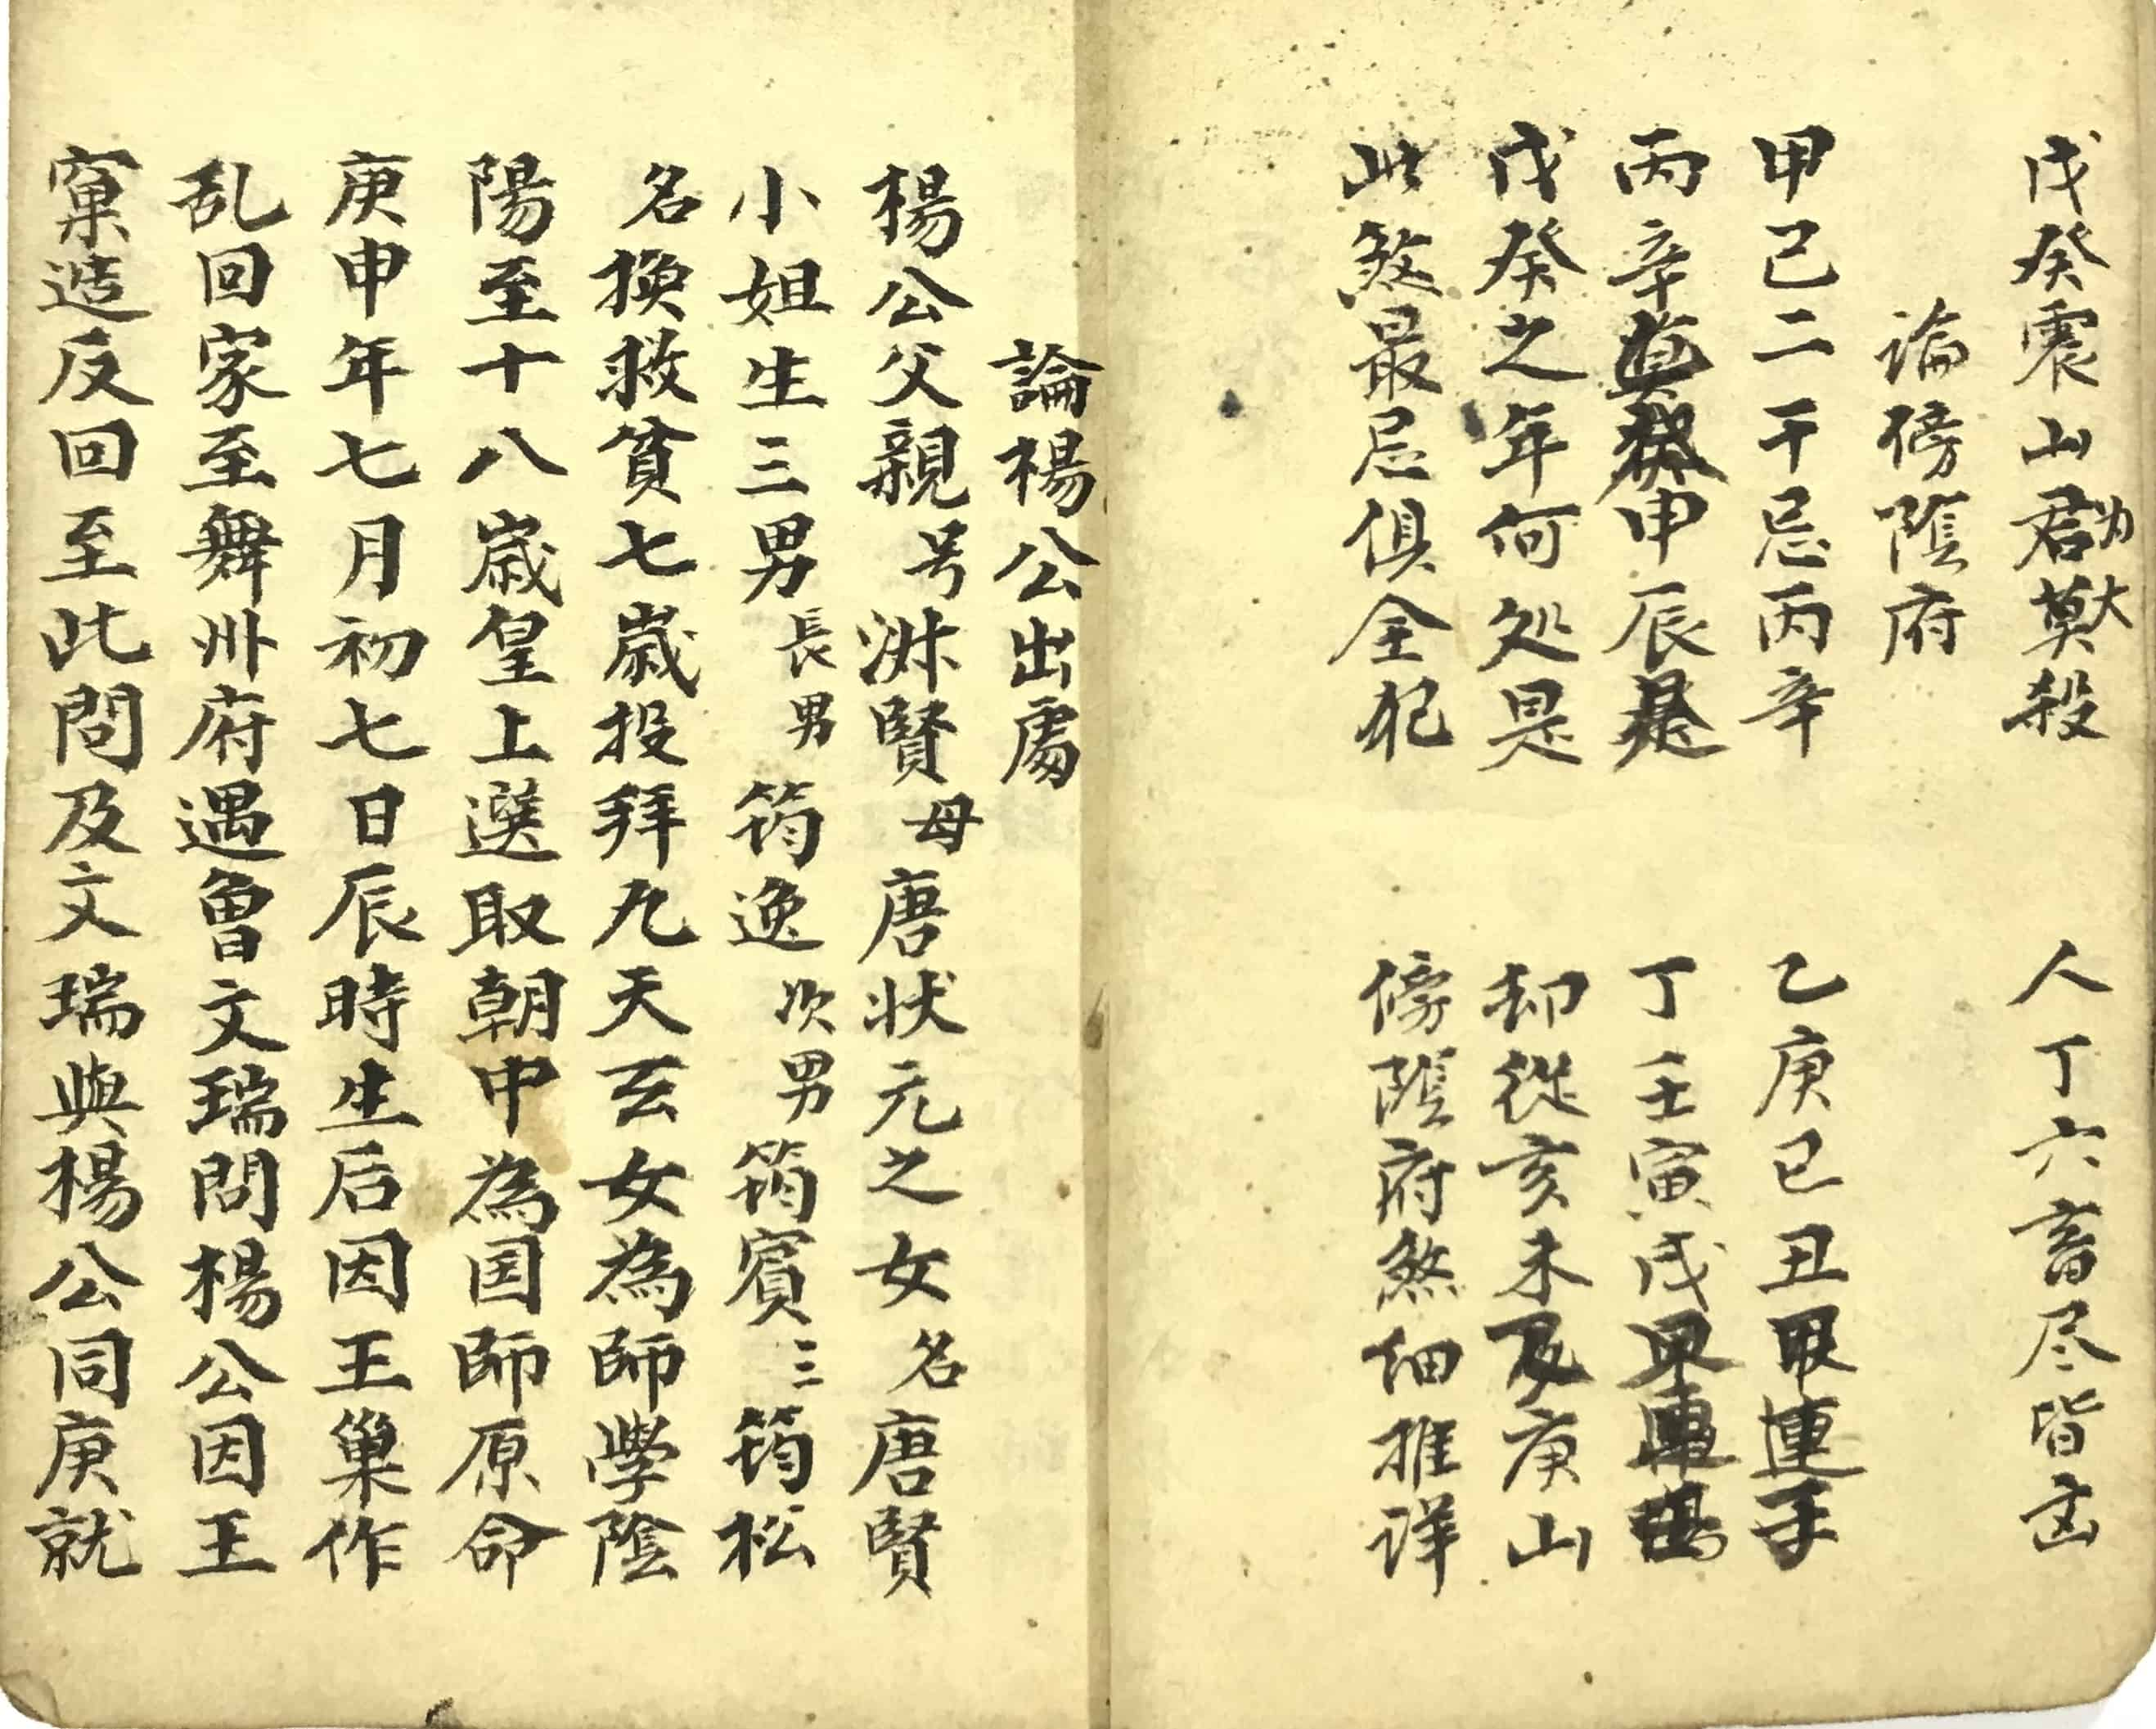 戊癸震山君莫殺 人丁六畜尽皆凶
論傍陰府
甲己二干忌丙辛 乙庚巳丑甲連壬
丙辛申辰是 丁壬寅戌
戊癸之年何处是 却從亥未及庚山
此煞最忌俱全犯 傍陰府煞细推详
論楊公出處
楊公父親号淋賢母唐状元之女名唐賢
小姐生三男長男筠逸次男筠賓三筠松
名換救貧七歲投拜九天玄女為師學陰
陽至十八歲皇上選取朝中為国師原命
庚申年七月初七日辰時生后因王巢作
乱回家至舞州府遇曾文瑞問楊公因王
窠造反回至此問及文瑞與楊公同庚就